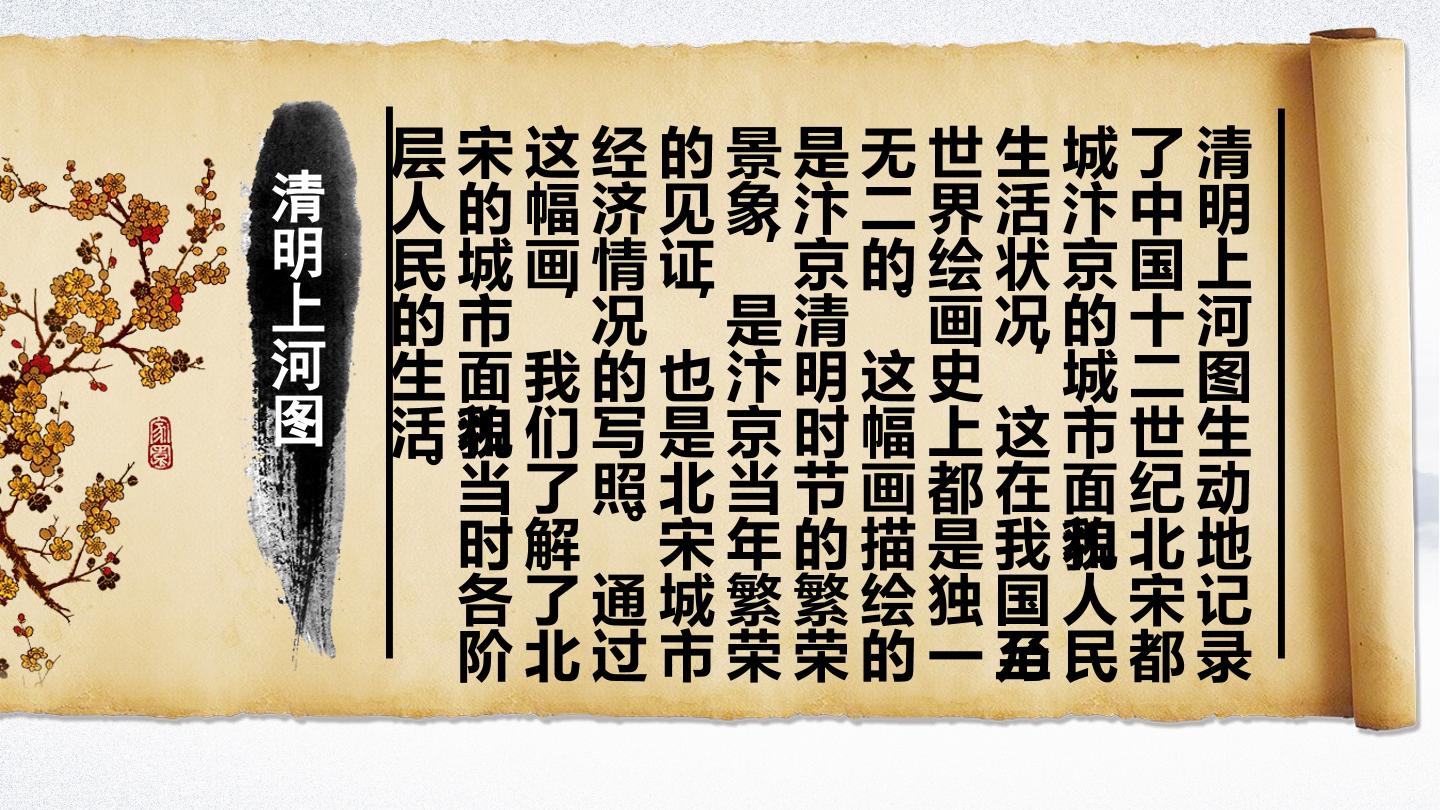 清明上河图生动地记录
了中国十二世纪北宋都
城汴京的城市面貌和人民
生活状况，这在我国乃至
世界绘画史上都是独一
无二的。这幅画描绘的
是汴京清明时节的繁荣
景象，是汴京当年繁荣
的见证，也是北宋城市
经济情况的写照。通过
这幅画，我们了解了北
宋的城市面貌和当时各阶
层人民的生活。
清明上河图